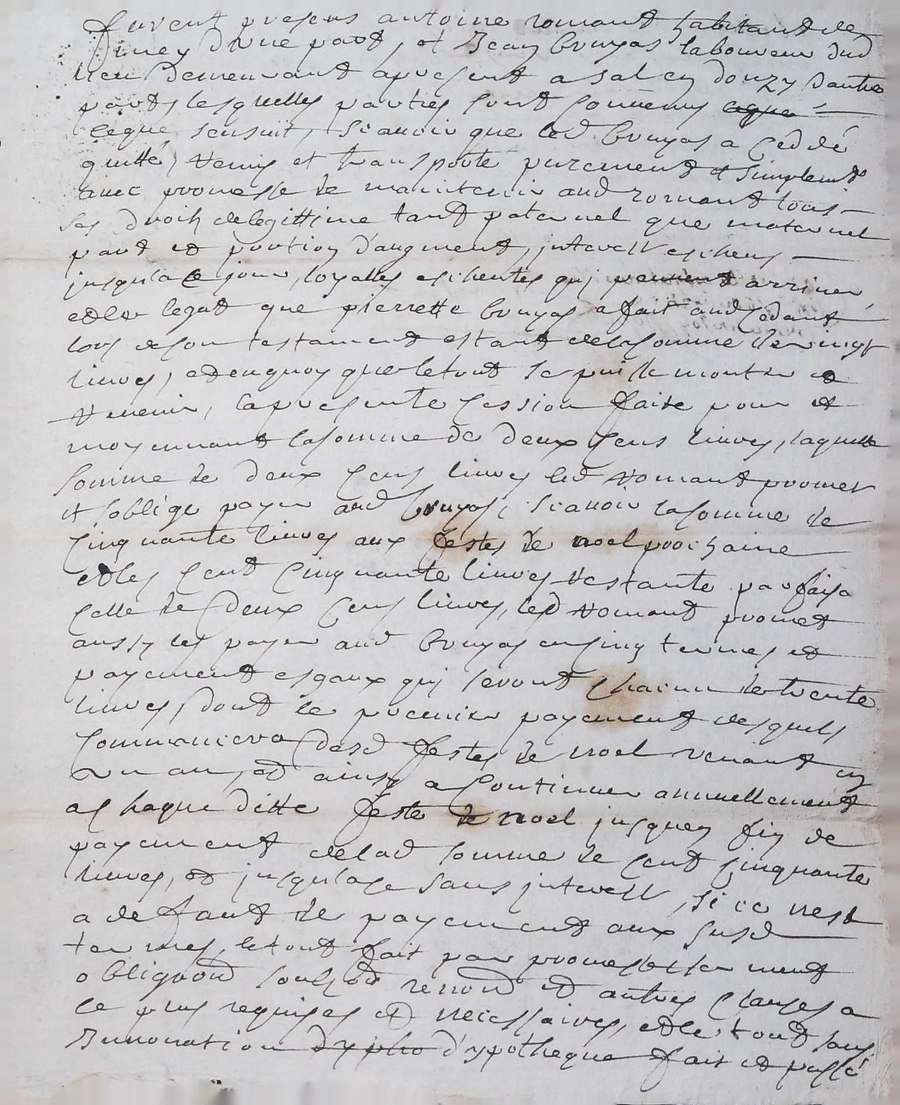 furent presens antoine romant habitant de
Civey d'une part, et Jean bruyas laboureur dud
lieu demeurant apresent a sal en donzy d'autre
part, lesquelles parties sont convenus
ceque sensuit, scavoir que led bruyas a ceddé
quitté, remis et transporté purement et simplem.t
avec promesse de maintenir aud romant tous
ses droits de legittime tant paternel que maternel
part et portion d'augment, interest escheus
jusqu'a ce jour, loyalles eschentes qui peuvent arriver,
et le legat que pierrette bruyas a fait aud cedant
lors de son testament estant de la somme de vingt
livres, et en quoy que le tout se puisse monter et
venir, la presente cession faite pour et
moyennant la somme de deux cens livres, laquelle
somme de deux cens livres led romant promet
et s'oblige payer aud bruyas, scavoir la somme de
cinquante livres aux festes de noel prochaine
et les cent cinquante livres restante parfaisa
celle de deux cens livres, led romant promet
aussy les payer aud bruyas en cinq termes et
payement esgaux qui seront chacun de trente
livres, dont le premier payement desquels
commancera desd festes de noel venant en
un an, et ainsy a continuer annuellement
a chaque ditte feste de noel jusques fin de
payement de lad somme de cent cinquante
livres, et jusqu'a ce sans interest, si ce nest
a defaut de payement aux susd
termes, le tout fait par promesse serment
obligaon soubzon renon et autres clauses a
ce plus requises et necissaires, et le tout sans
Innovation d'ypotheque fait et passé